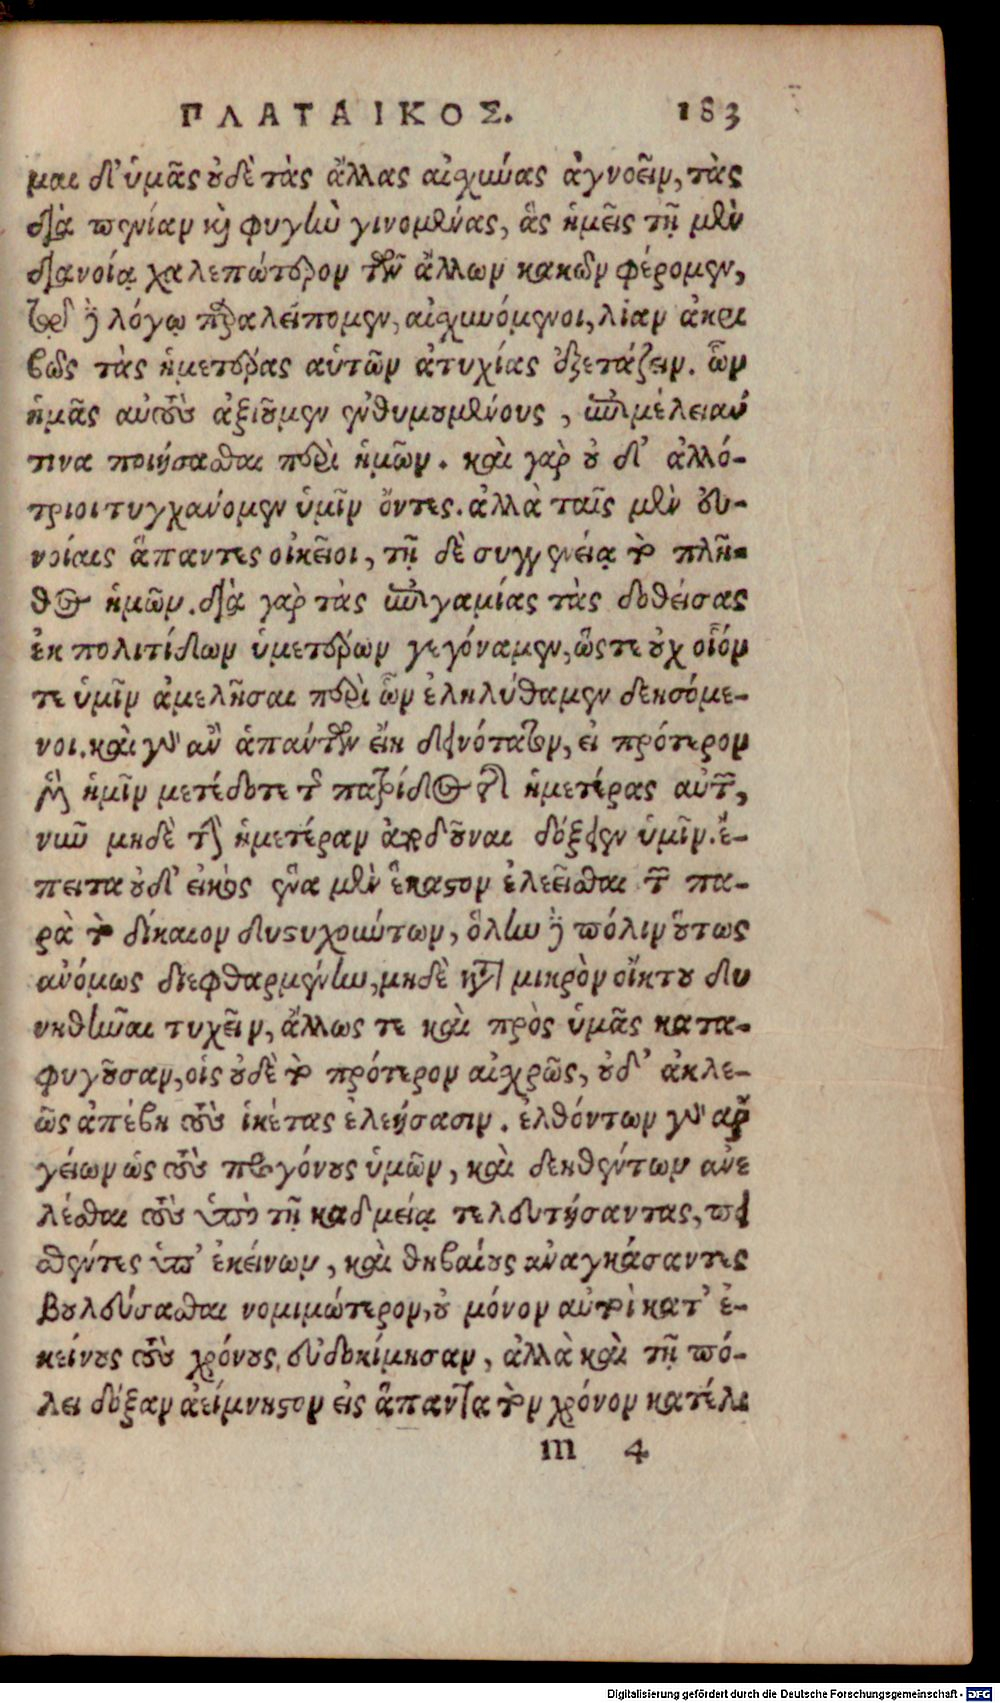 ΠΛΑΤΑΙΚΟΣ. 183
μαι δ' ὑμᾶς οὐδὲ τὰς ἄλλας αἰσχύνας ἀγνοεῖν, τὰς
διὰ πενίαν καὶ φυγὴν γινομένας, ἃς ἡμεῖς τῇ μὲν
διανοίᾳ χαλεπώτερον τῶν ἄλλων κακῶν φέρομεν,
τῷ δὲ λόγῳ παραλείπομεν, αἰσχυνόμενοι, λίαν ἀκρι
βῶς τὰς ἡμετέρας αὑτῶν ἀτυχίας ἐξετάζειν. ὧν
ἡμᾶς αὐτοὺς ἀξιοῦμεν ἐνθυμουμένους, ἐπιμέλειαν
τινα ποιήσασθαι περὶ ἡμῶν. καὶ γὰρ οὐδ' ἀλλό-
τριοι τυγχάνομεν ὑμῖν ὄντες. ἀλλὰ ταῖς μὲν εὐ-
νοίαις ἅπαντες οἰκεῖοι, τῇ δὲ συγγενείᾳ τὸ πλῆ-
θος ἡμῶν. διὰ γὰρ τὰς ἐπιγαμίας τὰς δοθείσας
ἐκ πολιτίδων ὑμετέρων γεγόναμεν, ὥστε οὐχ οἷόν
τε ὑμῖν ἀμελῆσαι περὶ ὧν ἐληλύθαμεν δεησόμε-
νοι. καὶ γὰρ ἂν ἁπάντων εἴη δεινότατον, εἰ πρότερον
μὲν ἡμῖν μετέδοτε τῆς πατρίδος τῆς ἡμετέρας αὐτῶν,
νῦν μηδὲ τὴν ἡμετέραν ἀποδοῦναι δόξειεν ὑμῖν. ἔ-
πειτα οὐδ' εἰκὸς ἕνα μὲν ἕκαστον ἐλεεῖσθαι τῶν πα-
ρὰ τὸ δίκαιον δυστυχούντων, ὅλην δὲ πόλιν οὕτως
ἀνόμως διεφθαρμένην, μηδὲ κατὰ μικρὸν οἴκτου δυ
νηθῆναι τυχεῖν, ἄλλως τε καὶ πρὸς ὑμᾶς κατα-
φυγοῦσαν, οἷς οὐδὲ τὸ πρότερον αἰσχρῶς, οὐδ' ἀκλε-
ῶς ἀπέβη τοὺς ἱκέτας ἐλεήσασιν. ἐλθόντων γὰρ ἀρ
γείων ὡς τοὺς προγόνους ὑμῶν, καὶ δεηθέντων ἀνε
λέσθαι τοὺς ὑπὸ τῇ καδμείᾳ τελευτήσαντας, πει
σθέντες ὑπ' ἐκείνων, καὶ θηβαίους ἀναγκάσαντες
βουλεύσασθαι νομιμώτερον, οὐ μόνον αὐτοὶ κατ' ἐ-
κείνους τοὺς χρόνους, εὐδοκίμησαν, ἀλλὰ καὶ τῇ πό-
λει δόξαν ἀείμνηστον εἰς ἅπαντα τὸν χρόνον κατέλι
m 4
Digitalisierung gefördert durch die Deutsche Forschungsgemeinschaft - DFG